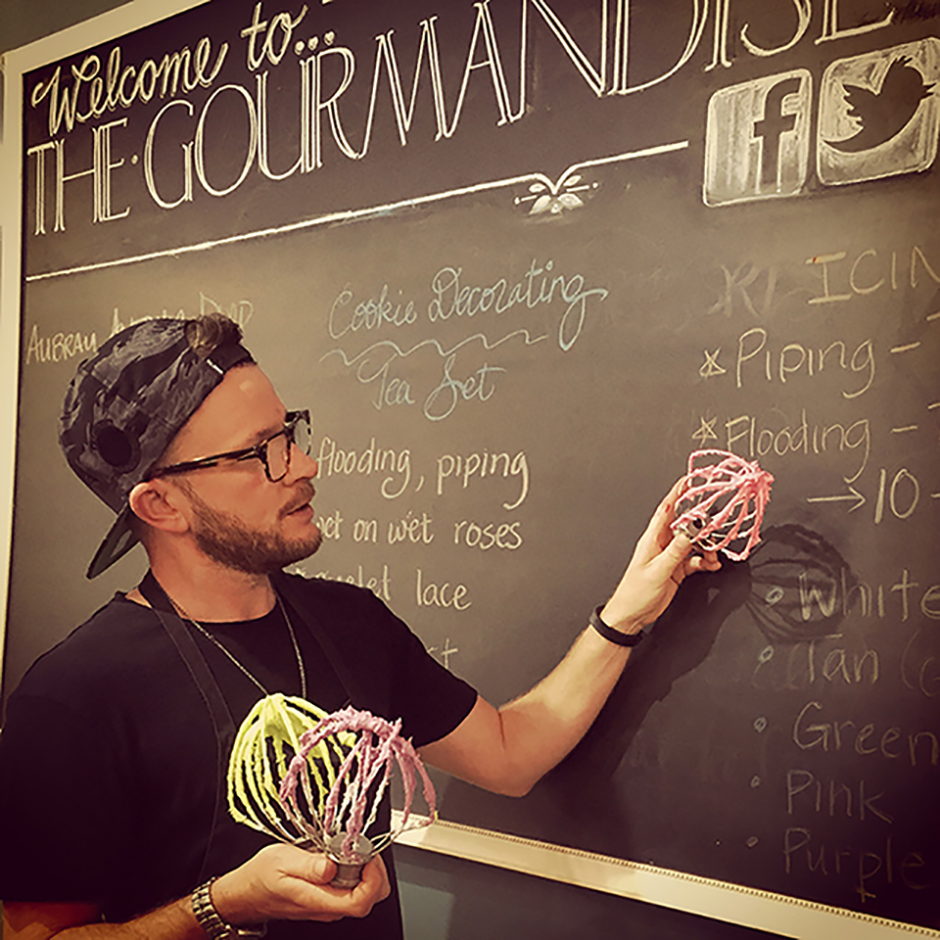 Welcome to...
THE·GOURMANDISE
f
AUBRAU
Cookie Decorating
Tea Set
flooding, piping
wet on wet roses
lace
ICIN
Piping -
Flooding -
→10-
White
Tan (
Green
Pink
Purple